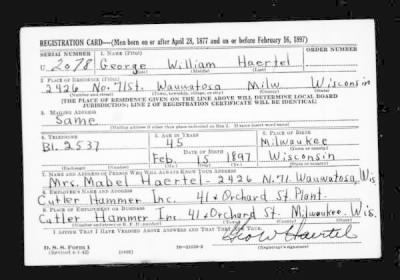 REGISTRATION CARD—(Men born on or after April 28, 1877 and on or before February 16, 1897)
SERIAL NUMBER 1. NAME (Print) ORDER NUMBER
U 2078 George William Haertel
(First) (Middle) (Last)
2. PLACE OF RESIDENCE (Print)
2426 No. 71st. Wauwatosa Milw Wisconsin
(Number and street) (Town, township, village, or city) (County) (State)
[THE PLACE OF RESIDENCE GIVEN ON THE LINE ABOVE WILL DETERMINE LOCAL BOARD
JURISDICTION; LINE 2 OF REGISTRATION CERTIFICATE WILL BE IDENTICAL]
3. MAILING ADDRESS
Same
[Mailing address if other than place indicated on line 2. If same insert word same]
4. TELEPHONE 5. AGE IN YEARS 6. PLACE OF BIRTH
Bl. 2537 45 Milwaukee
DATE OF BIRTH (Town or county)
Feb. 15 1897 Wisconsin
(Exchange) (Number) (Mo.) (Day) (Yr.) (State or country)
7. NAME AND ADDRESS OF PERSON WHO WILL ALWAYS KNOW YOUR ADDRESS
Mrs. Mabel Haertel - 2426 N. 71. Wauwatosa, Wis
8. EMPLOYER'S NAME AND ADDRESS
Cutler Hammer Inc. 41 & Orchard St Plant.
9. PLACE OF EMPLOYMENT OR BUSINESS
Cutler Hammer Inc. 41 & Orchard St. Milwaukee. Wis.
(Number and street or R. F. D. number) (Town) (County) (State)
I AFFIRM THAT I HAVE VERIFIED ABOVE ANSWERS AND THAT THEY ARE TRUE.
Geo W Haertel
D. S. S. Form 1
(Revised 4-1-42) (over) (Registrant's signature)